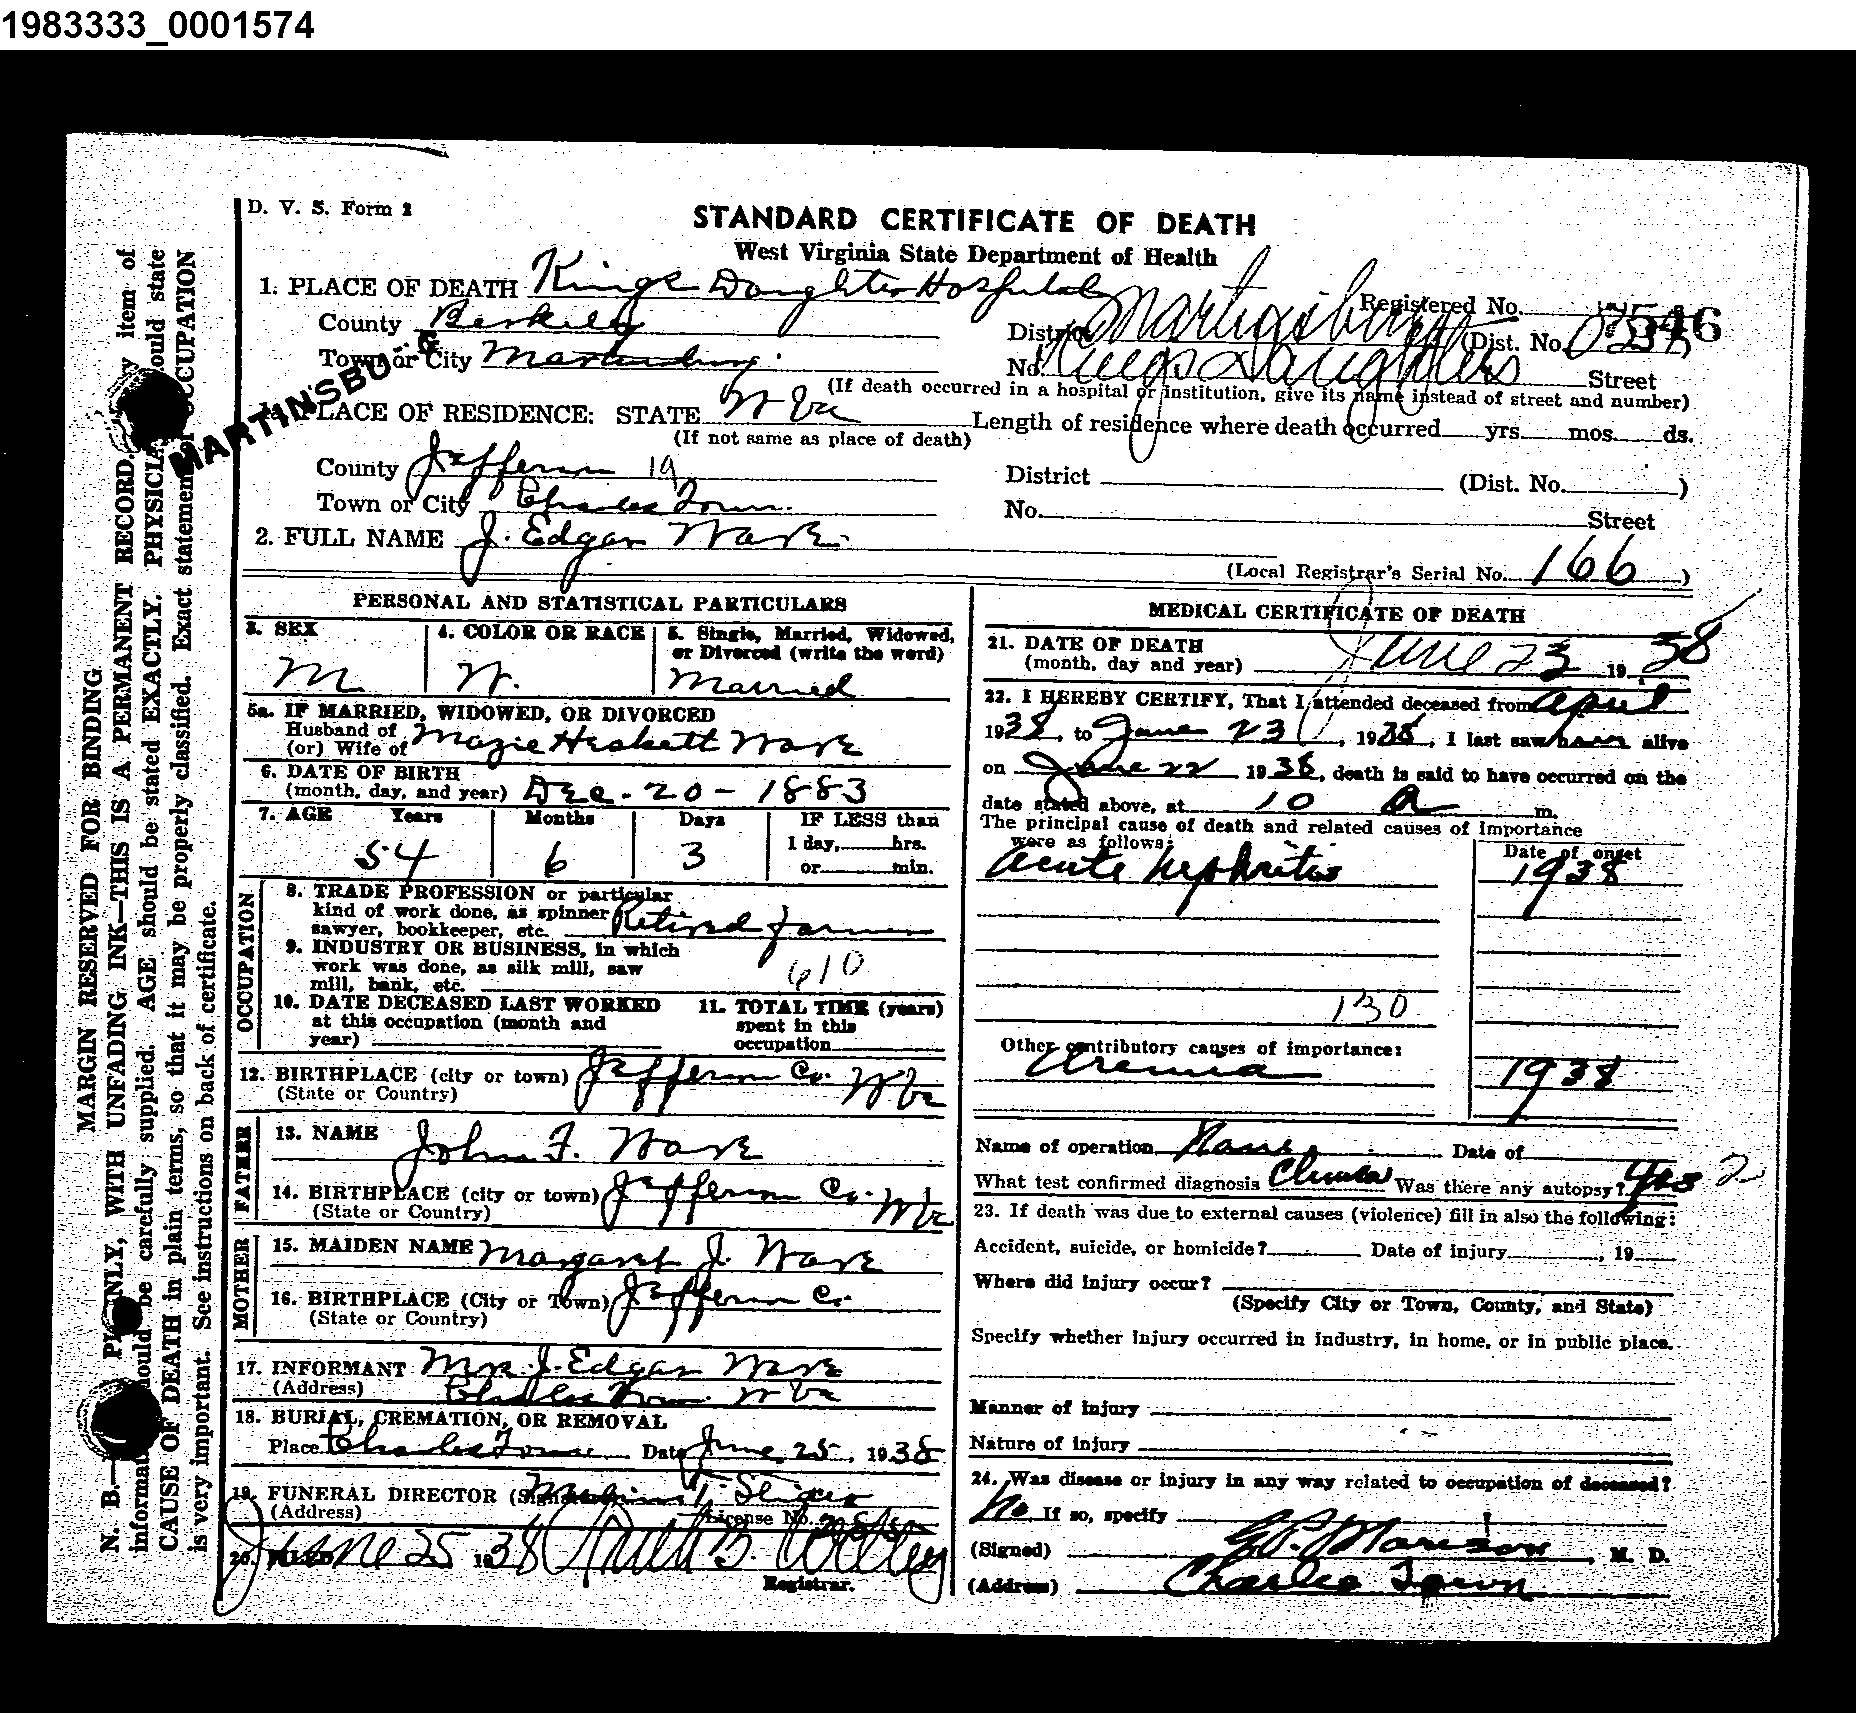 1983333_0001574
D. V. S. Form 2
STANDARD CERTIFICATE OF DEATH
West Virginia State Department of Health
1. PLACE OF DEATH Kings Daughters Hospital Registered No. 7546
County Berkeley District Martinsburg (Dist. No. )
Town or City Martinsburg No. Kings Daughters Street
(If death occurred in a hospital or institution, give its name instead of street and number)
MARTINSBU
PLACE OF RESIDENCE: STATE W Va Length of residence where death occurred yrs. mos. ds.
(If not same as place of death)
County Jefferson 19 District (Dist. No. )
Town or City Charles Town No. Street
2. FULL NAME J. Edgar Ware
(Local Registrar's Serial No. 166 )
PERSONAL AND STATISTICAL PARTICULARS
3. SEX M.
4. COLOR OR RACE W.
5. Single, Married, Widowed, or Divorced (write the word) Married
5a. IF MARRIED, WIDOWED, OR DIVORCED
Husband of (or) Wife of Mazie Heskett Ware
6. DATE OF BIRTH
(month, day, and year) Dec. 20 - 1883
7. AGE Years Months Days IF LESS than
54 6 3 1 day, hrs.
or min.
OCCUPATION
8. TRADE PROFESSION or particular
kind of work done, as spinner
sawyer, bookkeeper, etc. Retired farmer
9. INDUSTRY OR BUSINESS, in which
work was done, as silk mill, saw
mill, bank, etc. 610
10. DATE DECEASED LAST WORKED
at this occupation (month and
year)
11. TOTAL TIME (years)
spent in this
occupation
12. BIRTHPLACE (city or town) Jefferson Co. W Va
(State or Country)
FATHER
13. NAME John F. Ware
14. BIRTHPLACE (city or town) Jefferson Co. W Va
(State or Country)
MOTHER
15. MAIDEN NAME Margaret J. Ware
16. BIRTHPLACE (City or Town) Jefferson Co.
(State or Country)
17. INFORMANT Mrs. J. Edgar Ware
(Address) Charles Town W Va
18. BURIAL, CREMATION, OR REMOVAL
Place Charles Town Date June 25, 1938
19. FUNERAL DIRECTOR
(Address) License No.
20. FILED June 25 1938
Registrar.
MEDICAL CERTIFICATE OF DEATH
21. DATE OF DEATH
(month, day and year) June 23 1938
22. I HEREBY CERTIFY, That I attended deceased from April
1938, to June 23, 1938, I last saw him alive
on June 22 1938, death is said to have occurred on the
date stated above, at 10 a m.
The principal cause of death and related causes of importance
were as follows: Date of onset
Acute Nephritis 1938
130
Other contributory causes of importance:
Uremia 1938
Name of operation None Date of
What test confirmed diagnosis Clinical Was there any autopsy? yes 2
23. If death was due to external causes (violence) fill in also the following:
Accident, suicide, or homicide? Date of injury , 19
Where did injury occur?
(Specify City or Town, County, and State)
Specify whether injury occurred in industry, in home, or in public place.
Manner of injury
Nature of injury
24. Was disease or injury in any way related to occupation of deceased?
No If so, specify
(Signed) M. D.
(Address) Charles Town
MARGIN RESERVED FOR BINDING
N. B.— NLY, WITH UNFADING INK—THIS IS A PERMANENT RECORD. item of
should be carefully supplied. AGE should be stated EXACTLY. PHYSICIA ould state
CAUSE OF DEATH in plain terms, so that it may be properly classified. Exact statement of OCCUPATION
is very important. See instructions on back of certificate.